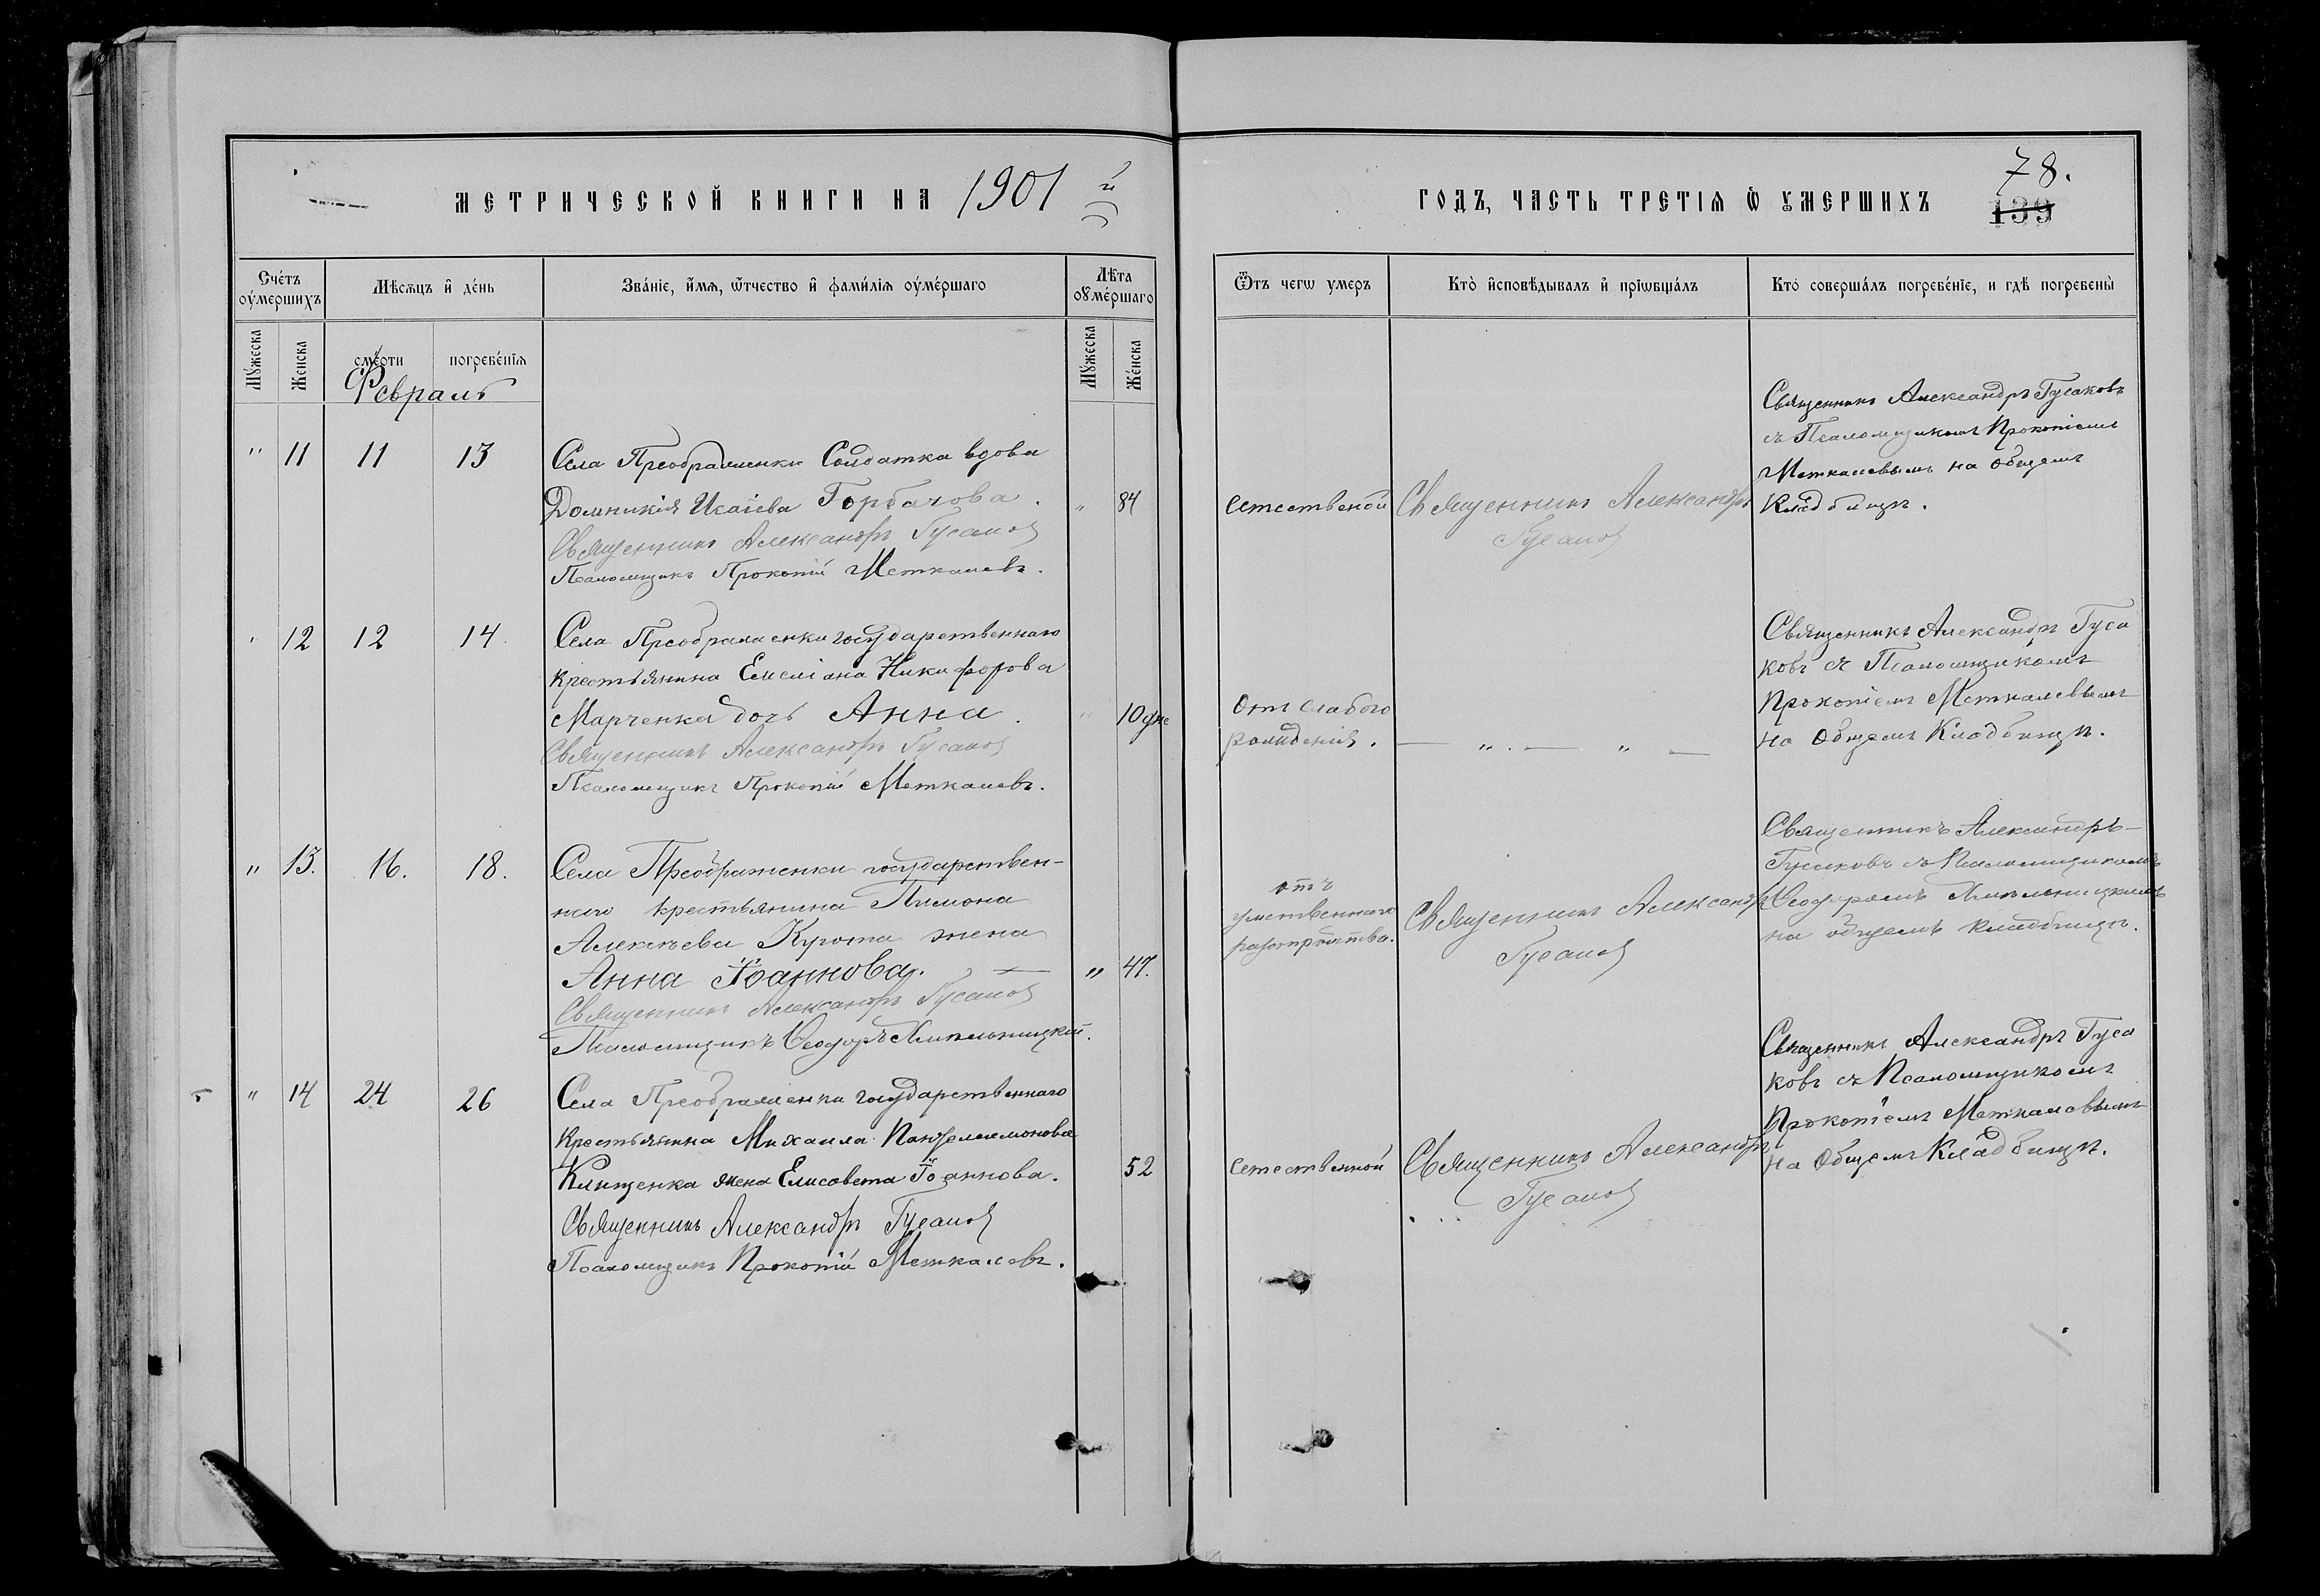 МЕТРИЧЕСКОЙ КНИГИ НА 1901 й
ГОДЪ, ЧАСТЬ ТРЕТІѦ Ѡ УМЕРШИХЪ
78.
139
Сче́тъ оу҆ме́ршихъ
Мѣ́сѧцъ и҆ де́нь
Зва́ніе, и҆́мѧ, ѻ҆́тчество и҆ фами́лїѧ оу҆ме́ршаго
Лѣ̑та оу҆ме́ршаго
Ѿ чегѡ̀ умеръ
Кто̀ и҆сповѣ́дывалъ и҆ прїѡбща́лъ
Кто́ соверша́лъ погребе́нїе, и гдѣ̀ погребены̀
Му́жеска
Же́нска
сме́рти
погребе́нїѧ
Му́жеска
Же́нска
Февраль
" 11 11 13
Села Преображенки Солдатка вдова
Домникія Исаіева Горбачова.
Священникъ Александръ Гусаков
Псаломщикъ Прокопій Меткалевъ.
" 84
естественой
Священникъ Александръ
Гусаков
Священникъ Александръ Гусаковъ
съ Псаломщикомъ Прокопіемъ
Меткалевымъ на общемъ
Кладбищѣ.
12 12 14
Села Преображенки государственнаго
крестьянина Емеліана Никифорова
Марченка дочь Анна.
Священникъ Александръ Гусаков
Псаломщикъ Прокопій Меткалевъ.
" 10 дне
Отъ слабого
рожденія.
— " . — " —
Священникъ Александръ Гуса
ковъ съ Псаломщикомъ
Прокопіемъ Меткалевымъ
на Общемъ Кладбищѣ.
" 13. 16. 18.
Села Преображенки государствен-
наго крестьянина Пимона
Алексѣева Курота жена
Анна Іоаннова. —
Священникъ Александръ Гусаков
Псаломщикъ Ѳеодоръ
" 47.
отъ
умственнаго
разстройства.
Священникъ Александръ
Гусаков
Священникъ Александръ
Гусаковъ съ Псаломщикомъ
Ѳеодоромъ
на общемъ кладбищѣ.
" 14 24 26
Села Преображенки государственнаго
Крестьянина Михаила Пантелеимонова
Клищенка жена Елисавета Іоаннова.
Священникъ Александръ Гусаков
Псаломщикъ Прокопій Меткалевъ.
52
естественной
Священникъ Александръ
Гусаков
Священникъ Александръ Гуса
ковъ съ Псаломщикомъ
Прокопіемъ Меткалевымъ
на Общемъ Кладбищѣ.